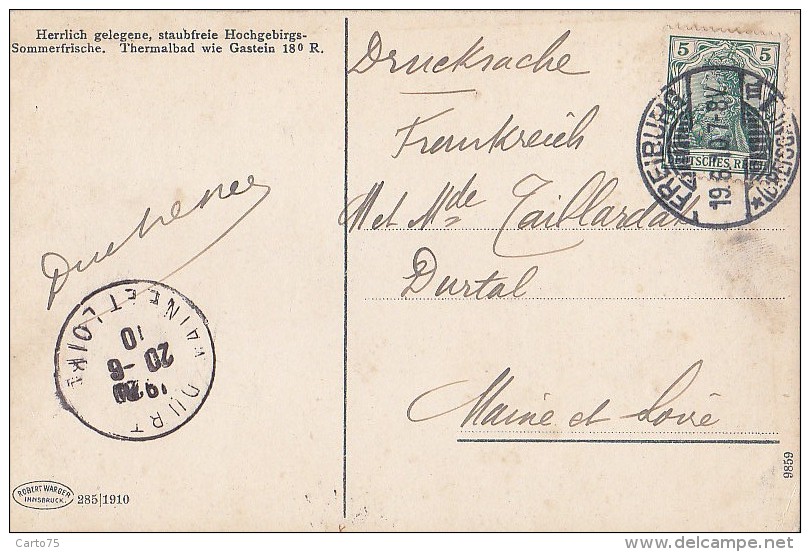 Herrlich gelegene, staubfreie Hochgebirgs-
Sommerfrische. Thermalbad wie Gastein 18⁰ R.
Drucksache
Frankreich
M et Mde Taillardat
Durtal
Maine et Loire
5 5
DEUTSCHES REICH
FREIBURG
19.6.10.7-8V.
*(BREISGAU) 1
MAINE ET LOIRE
10
20 -6
DURT
ROBERT WARGER
INNSBRUCK.
285|1910
9859
Carto75
www.delcampe.net